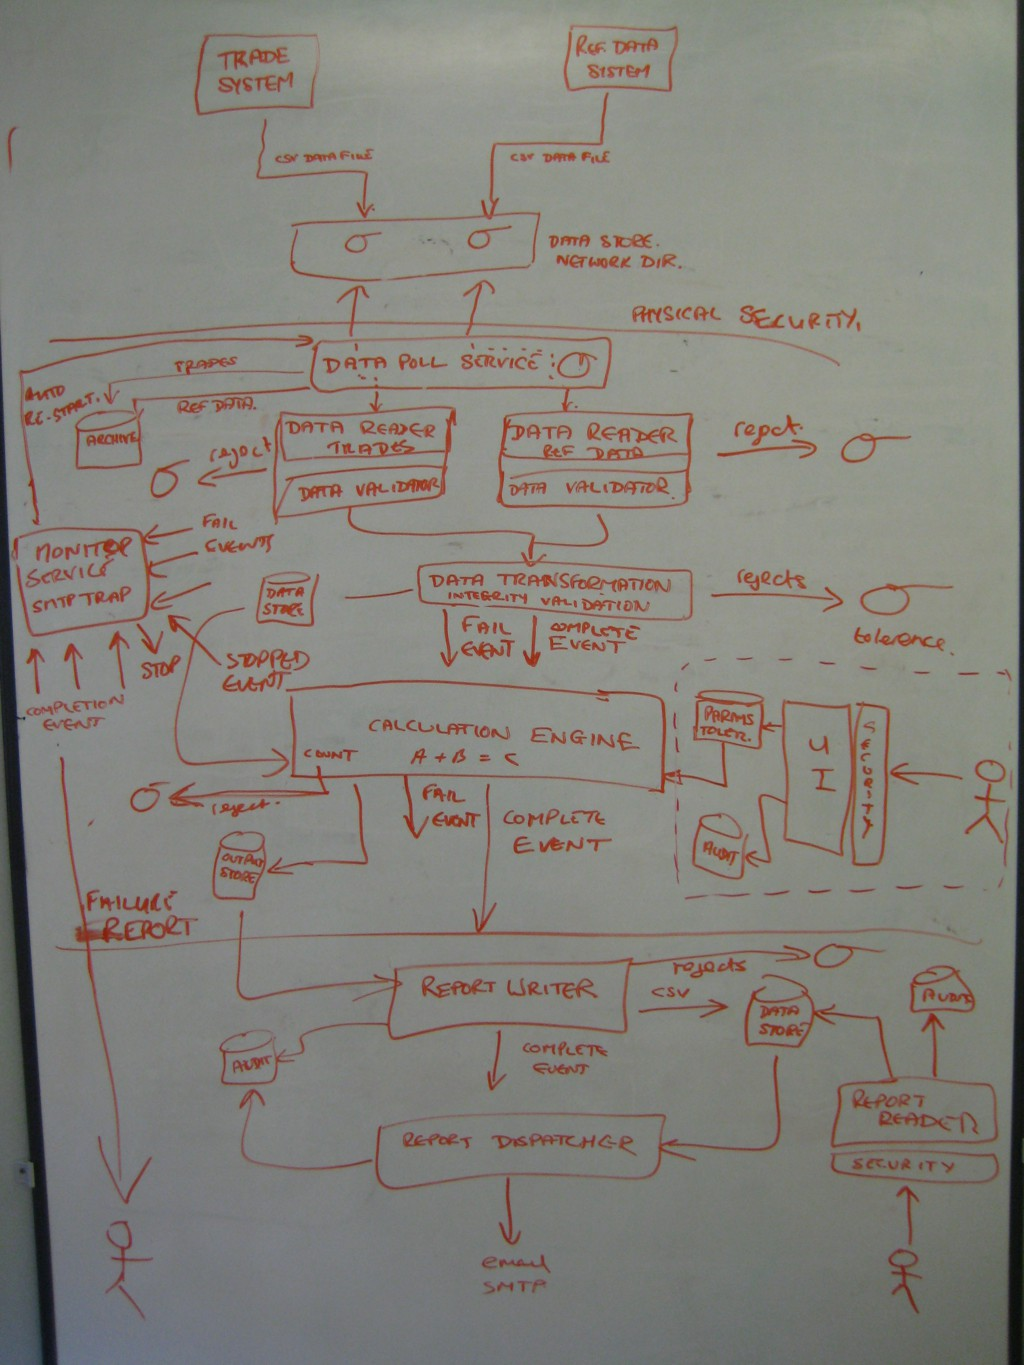 TRADE
SYSTEM
REF DATA
SYSTEM
CSV DATA FILE
CSV DATA FILE
DATA STORE.
NETWORK DIR.
PHYSICAL SECURITY.
DATA POLL SERVICE
TRADES
AUTO
RE-START.
REF DATA.
ARCHIVE
DATA READER
TRADES
DATA VALIDATOR
DATA READER
REF DATA
DATA VALIDATOR
reject
reject.
FAIL
EVENTS
MONITOR
SERVICE
SMTP TRAP
DATA
STORE
DATA TRANSFORMATION
INTEGRITY VALIDATION
rejects
tolerence.
FAIL
EVENT
COMPLETE
EVENT
STOP
STOPPED
EVENT
COMPLETION
EVENT
CALCULATION ENGINE
A + B = C
COUNT
reject.
PARAMS
TOLER.
UI
SECURITY
AUDIT
FAIL
EVENT
COMPLETE
EVENT
OUTPUT
STORE
FAILURE
REPORT
REPORT WRITER
rejects
CSV
DATA
STORE
AUDIT
AUDIT
COMPLETE
EVENT
REPORT
READER
SECURITY
REPORT DISPATCHER
email
SMTP